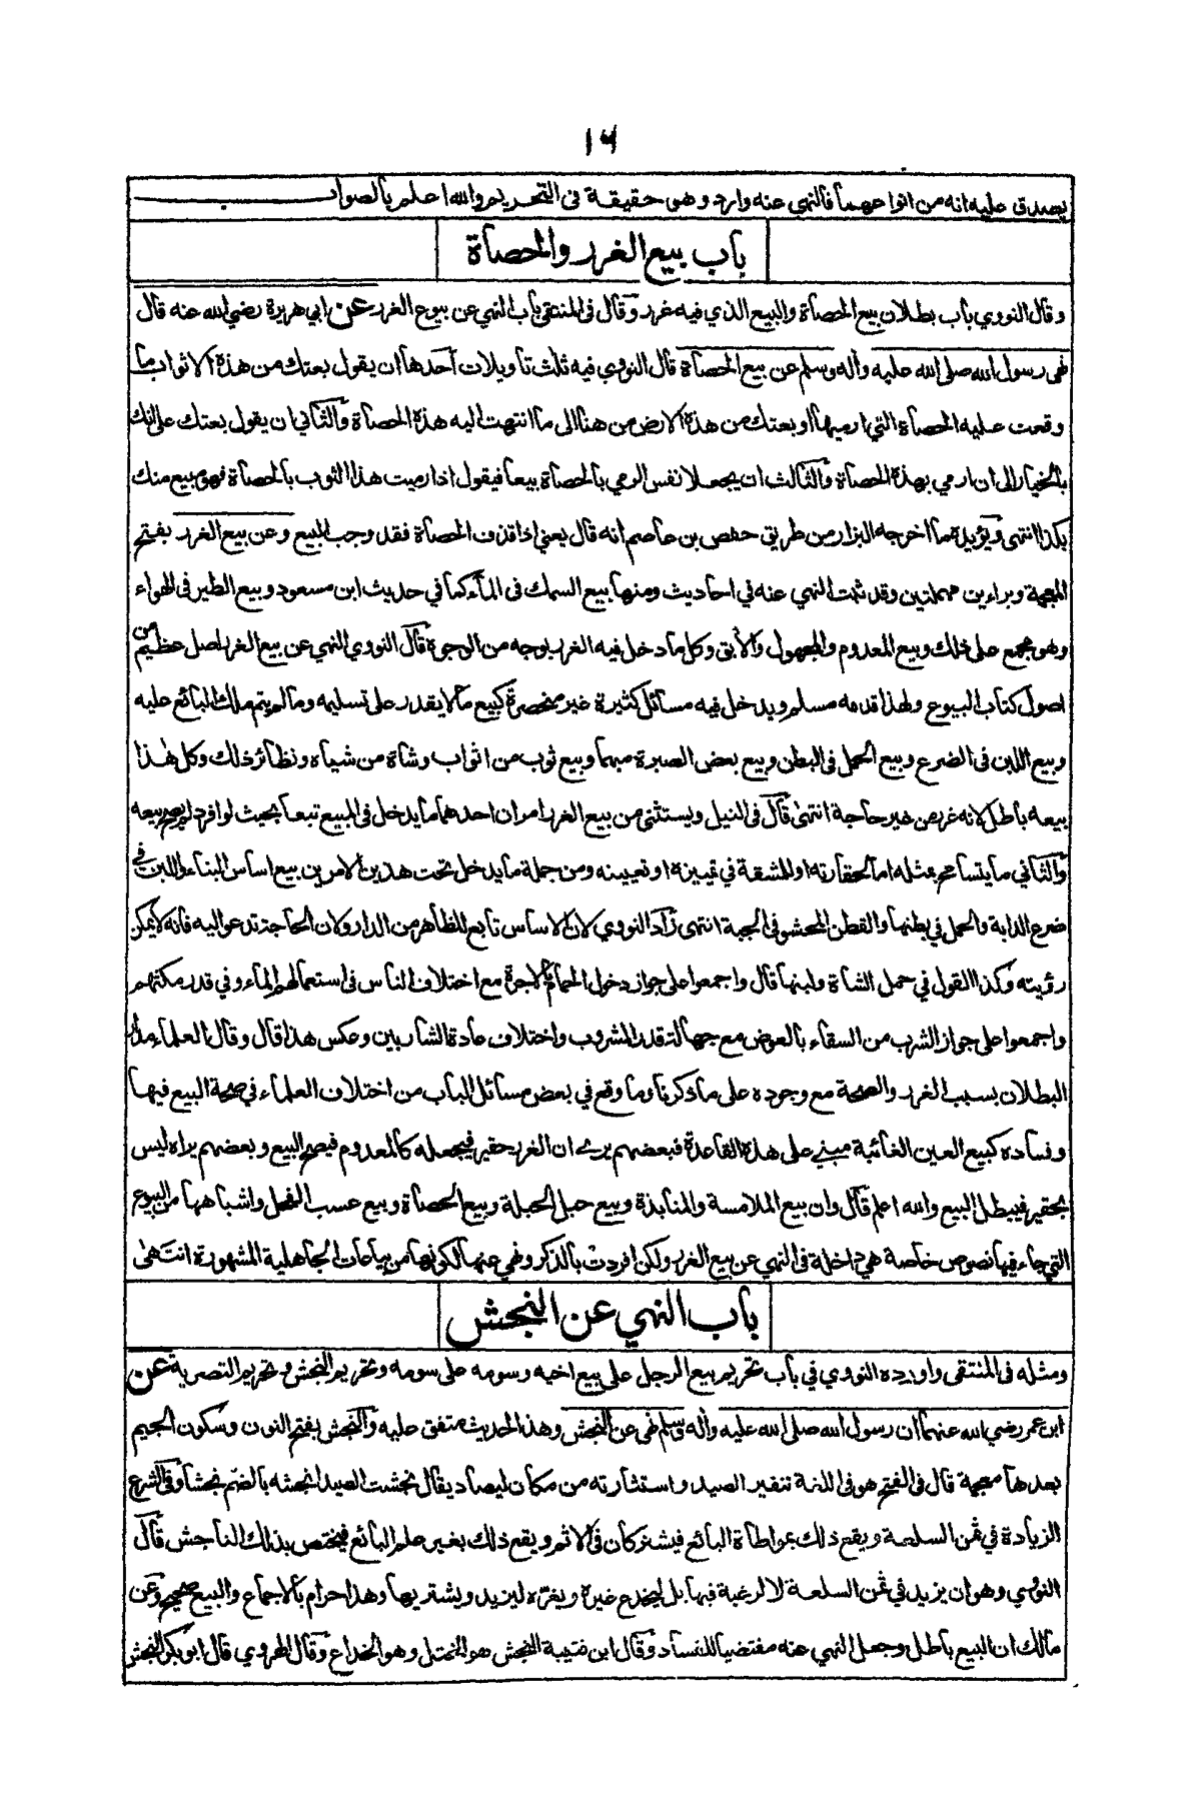 ١٦
يصدق عليه انه من انواعهما فالنهي عنه وارد وهو حقيقة في التحريم والله اعلم بالصواب
باب بيع الغرر والحصاة
وقال النووي باب بطلان بيع الحصاة والبيع الذي فيه غرر وقال في المنتقى باب النهي عن بيوع الغرر عن ابي هريرة رضي الله عنه قال
نهى رسول الله صلى الله عليه واله وسلم عن بيع الحصاة قال النووي فيه ثلث تأويلات احدها ان يقول بعتك من هذة الاثواب ما
وقعت عليه الحصاة التي ارميها او بعتك من هذة الارض من هنا الى ما انتهت اليه هذة الحصاة والثاني ان يقول بعتك على انك
بالخيار الى ان ارمي بهذة الحصاة والثالث ان يجعلا نفس الرمي بالحصاة بيعا فيقول اذا رميت هذا الثوب بالحصاة فهو مبيع منك
بكذا انتهى ويؤيدة ما اخرجه البزار من طريق حفص بن عاصم انه قال يعني اذا قذف الحصاة فقد وجب البيع وعن بيع الغرر بفتح
المعجمة وبراءين مهملتين وقد ثبت النهي عنه في احاديث ومنها بيع السمك في الماء كما في حديث ابن مسعود وبيع الطير في الهواء
وهو مجمع على ذلك وبيع المعدوم والمجهول والآبق وكل ما دخل فيه الغرر بوجه من الوجوة قال النووي النهي عن بيع الغرر اصل عظيم من
اصول كتاب البيوع ولهذا قدمه مسلم ويدخل فيه مسائل كثيرة غير منحصرة كبيع ما لا يقدر على تسليمه وما لم يتم ملك البائع عليه
وبيع اللبن في الضرع وبيع الحمل في البطن وبيع بعض الصبرة مبهما وبيع ثوب من اثواب وشاة من شياه ونظائر ذلك وكل هذا
بيعه باطل لانه غرر من غير حاجة انتهى قال في النيل ويستثنى من بيع الغرر امران احدهما ما يدخل في المبيع تبعا بحيث لو افرد لم يصح بيعه
والثاني ما يتسامح بمثله اما لحقارته او للمشقة في تمييزة او تعيينه ومن جملة ما يدخل تحت هذين الامرين بيع اساس البناء واللبن في
ضرع الدابة والحمل في بطنها والقطن المحشو في الجبة انتهى زاد النووي لان الاساس تابع للظاهر من الدار ولان الحاجة تدعو اليه فانه لا يمكن
رؤيته وكذا القول في حمل الشاة ولبنها قال واجمعوا على جواز دخول الحمام بالاجرة مع اختلاف الناس في استعمالهم الماء وفي قدر مكثهم
واجمعوا على جواز الشرب من السقاء بالعوض مع جهالة قدر المشروب واختلاف عادة الشاربين وعكس هذا قال وقال العلماء مدار
البطلان بسبب الغرر والصحة مع وجوده على ما ذكرنا وما وقع في بعض مسائل الباب من اختلاف العلماء في صحة البيع فيها
وفساده كبيع العين الغائبة مبني على هذة القاعدة فبعضهم يرے ان الغرر حقير فيجعله كالمعدوم فيصح البيع وبعضهم يراه ليس
بحقير فيبطل البيع والله اعلم قال وان بيع الملامسة والمنابذة وبيع حبل الحبلة وبيع الحصاة وبيع عسب الفحل واشباهها من البيوع
التي جاء فيها نصوص خاصة هي داخلة في النهي عن بيع الغرر ولكن افردت بالذكر ونهي عنها لكونها من بياعات الجاهلية المشهورة انتهى
باب النهي عن النجش
ومثله في المنتقى واورده النووي في باب تحريم بيع الرجل على بيع اخيه وسومه على سومه وتحريم النجش وتحريم التصرية عن
ابن عمر رضي الله عنهما ان رسول الله صلى الله عليه واله وسلم نهى عن النجش وهذا الحديث متفق عليه والنجش بفتح النون وسكون الجيم
بعدها معجمة قال في الفتح هو في اللغة تنفير الصيد واستثارته من مكان ليصاد يقال نجشت الصيد انجشه بالضم نجشا وفي الشرع
الزيادة في ثمن السلعة ويقع ذلك بمواطاة البائع فيشتركان في الاثم ويقع ذلك بغير علم البائع فيختص بذلك الناجش قال
النووي وهو ان يزيد في ثمن السلعة لا لرغبة فيها بل ليخدع غيرة ويغره ليزيد ويشتريها وهذا حرام بالاجماع والبيع صحيح وعن
مالك ان البيع باطل وجعل النهي عنه مقتضيا للفساد وقال ابن قتيبة النجش هو الختل وهو الخداع وقال الهروي قال ابو بكر النجش